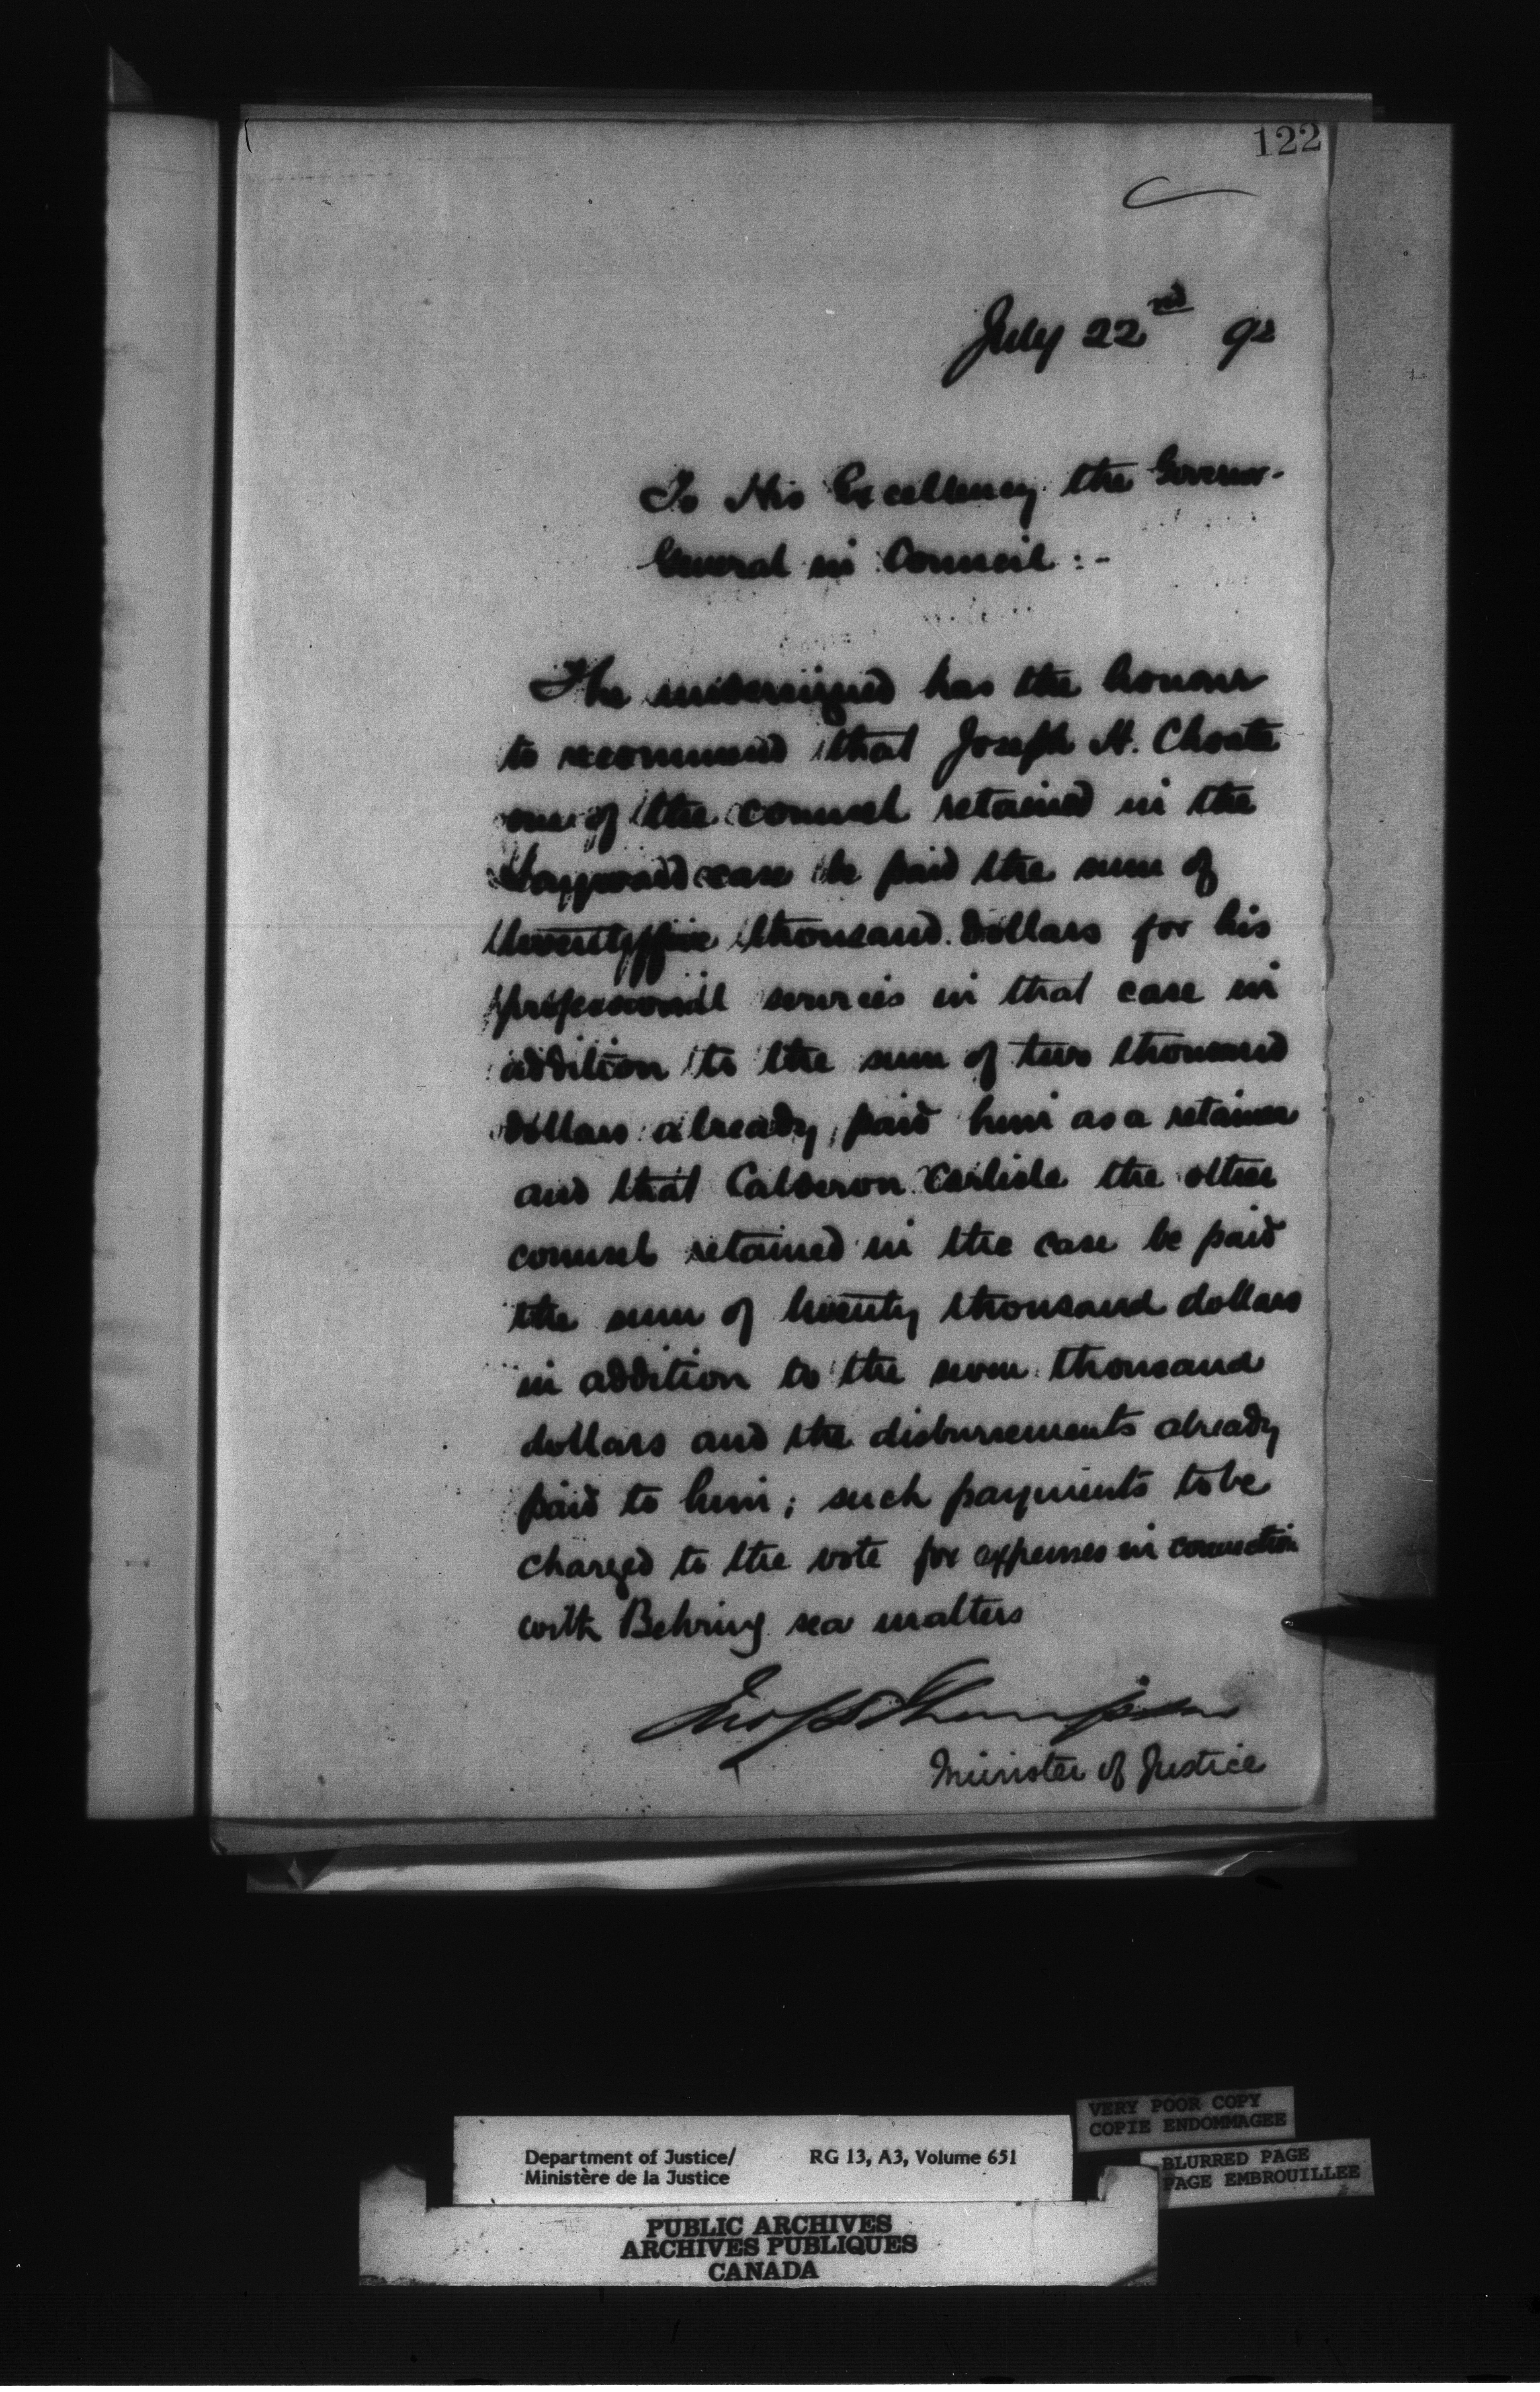 122
July 22nd 92
To His Excellency the Governor-
General in Council :-
The undersigned has the honour
to recommend that Joseph H. Choate
one of the counsel retained in the
Sayward case be paid the sum of
twentyfive thousand dollars for his
professional services in that case in
addition to the sum of two thousand
dollars already paid him as a retainer
and that Calderon Carlisle the other
counsel retained in the case be paid
the sum of twenty thousand dollars
in addition to the seven thousand
dollars and the disbursements already
paid to him; such payments to be
charged to the vote for expenses in connection
with Behring sea matters
Jno S D Thompson
Minister of Justice
VERY POOR COPY
COPIE ENDOMMAGEE
BLURRED PAGE
PAGE EMBROUILLEE
Department of Justice/ RG 13, A3, Volume 651
Ministère de la Justice
PUBLIC ARCHIVES
ARCHIVES PUBLIQUES
CANADA